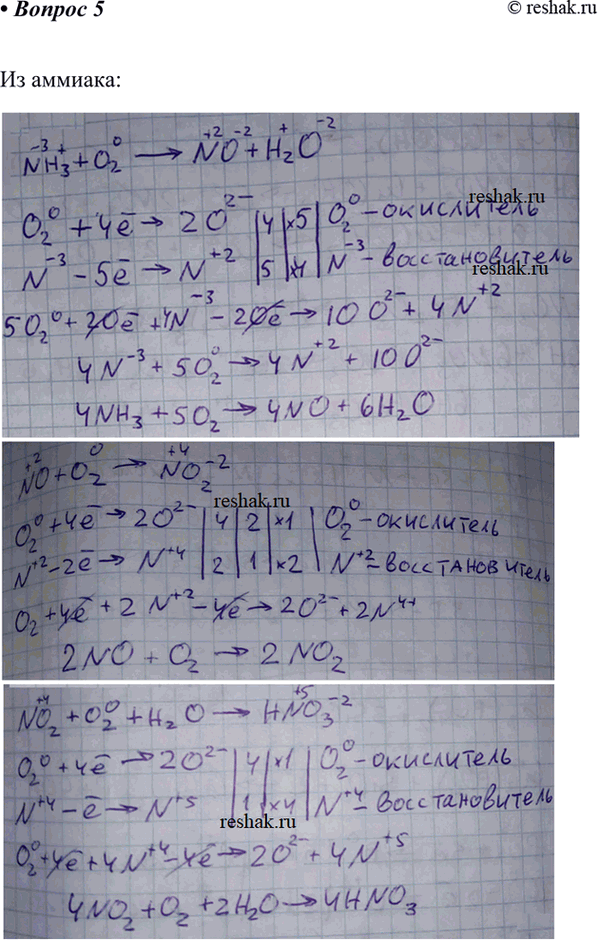 • Вопрос 5 © reshak.ru
Из аммиака:
N⁻³H₃⁺ + O₂⁰ → N⁺²O⁻² + H₂⁺O⁻²
reshak.ru
O₂⁰ + 4ē → 2O²⁻ | 4 | x5 | O₂⁰ - окислитель
N⁻³ - 5ē → N⁺² | 5 | x4 | N⁻³ - восстановитель
reshak.ru
5O₂⁰ + 20ē + 4N⁻³ - 20ē → 10O²⁻ + 4N⁺²
4N⁻³ + 5O₂⁰ → 4N⁺² + 10O²⁻
4NH₃ + 5O₂ → 4NO + 6H₂O
N⁺²O + O₂⁰ → N⁺⁴O₂⁻²
reshak.ru
O₂⁰ + 4ē → 2O²⁻ | 4 | 2 | x1 | O₂⁰ - окислитель
N⁺² - 2ē → N⁺⁴ | 2 | 1 | x2 | N⁺² - восстановитель
O₂ + 4ē + 2N⁺² - 4ē → 2O²⁻ + 2N⁴⁺
2NO + O₂ → 2NO₂
N⁺⁴O₂ + O₂⁰ + H₂O → HN⁺⁵O₃⁻²
O₂⁰ + 4ē → 2O²⁻ | 4 | x1 | O₂⁰ - окислитель
N⁺⁴ - ē → N⁺⁵ | 1 | x4 | N⁺⁴ - восстановитель
reshak.ru
O₂⁰ + 4ē + 4N⁺⁴ - 4ē → 2O²⁻ + 4N⁺⁵
4NO₂ + O₂ + 2H₂O → 4HNO₃